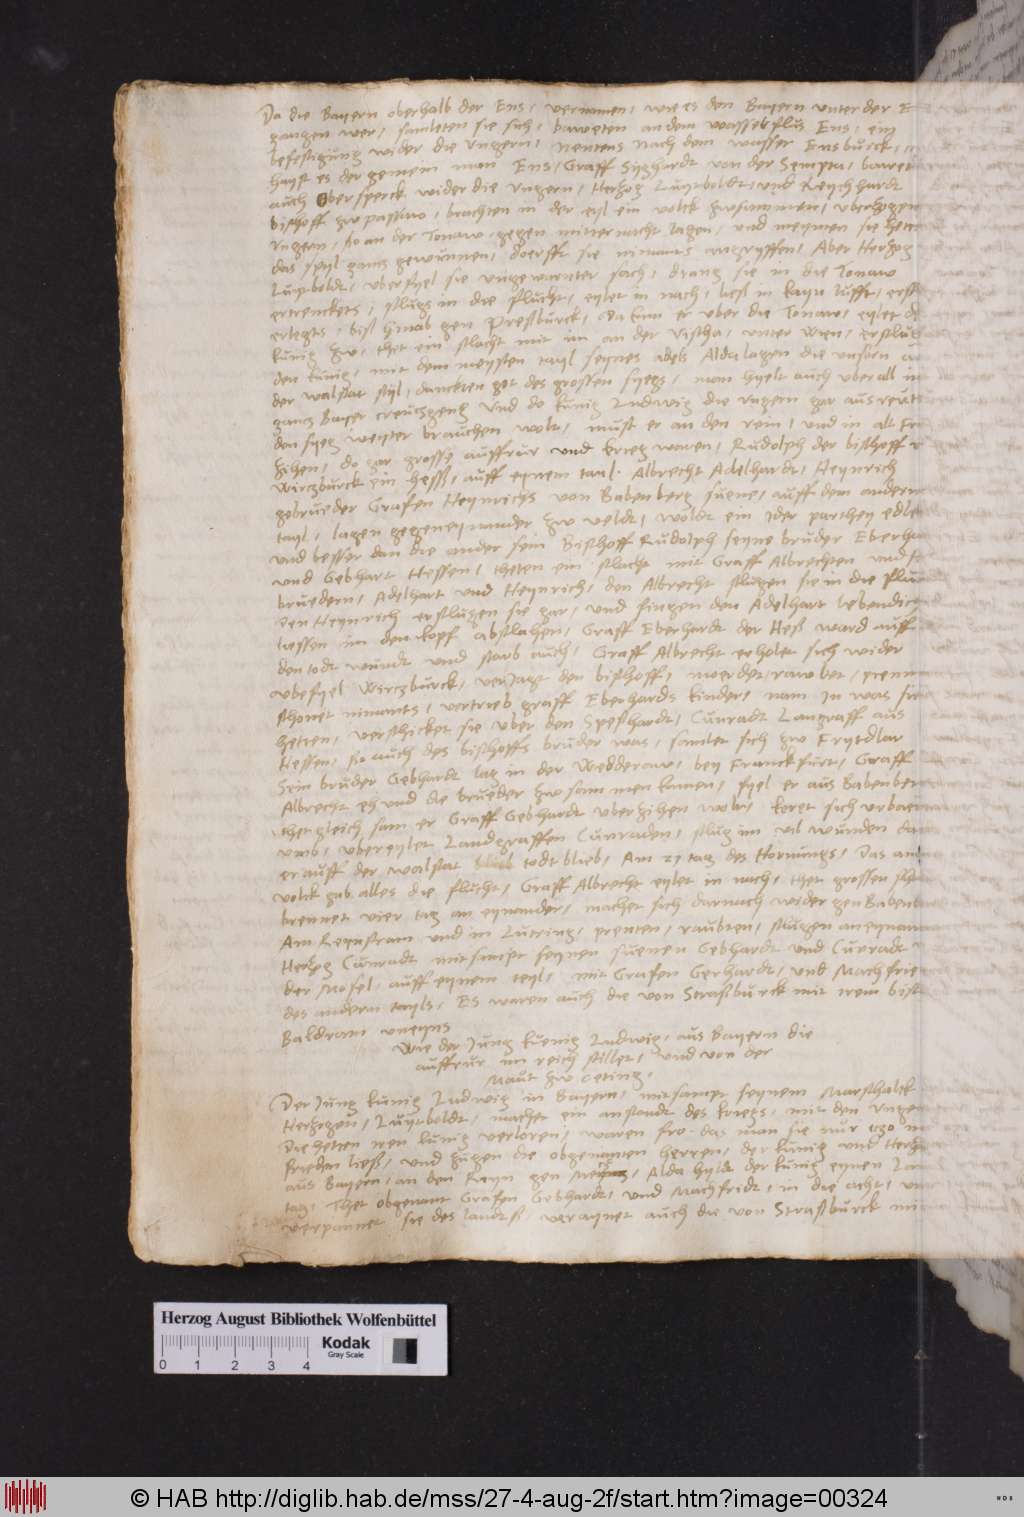 Da die Bayern oberhalb der Ens, vernamen, wie es den Bayern unter der
gangen wer, samleten sie sich, baweten an dem wasserflus Ens, ein
befestigung wider die Ungern, nentens nach dem wasser Ensburck,
hayst es der gemein man Ens, Graff Sighardt von der Sempta, bawet
auch Obersperck wider die Ungern, Hertzog Luytboldt, und Reychhardt
bischoff zw passaw, brachten in der eyl ein volck zwsammen, uberzogen
Ungern, so an der Tonaw, gegen mitternacht lagen, und meynten sie hetten
das spyl gantz gewunnen, doerfft sie nimants angryffen, Aber Hertzog
Luytboldt, uberfyel sie ungewarnter sach, drang sie in die Tonaw
ertrenckets, schlugs in die flucht, eylet in nach, ließ in kayn lufft,
erlegts, biß hinab gen Preßburck, Da kam er uber die Tonaw, eylet
kunig zw, thet ein schlacht mit im an der Vischa, unter Wien, erschlug
den kunig, mit dem meysten tayl seynes adels Alda lagen die unsern
der walstat stil, danckten got des grossen syegs, man hyelt auch uberall in
gantz Bayer creutzgeng Und do kunig Ludwig die Ungern gar ausreuten
den syeg weyter brauchen wolt, must er an den rein, und in alt
zihen, do gar grosse auffrur und krieg waren, Rudolph der bischoff
Wirczburck ein Hess, auff eynem tayl. Albrecht Adelhardt, Heynrich
gebrueder Grafen Heynrichs von Babenberg suene, auff dem andern
tayl, lagen gegeneynander zw veldt, woldt ein jder parthey edler
und besser dan die ander sein Bischoff Rudolph seyne bruder Eberhardt
und Gebhart Hessen, theten ein schlacht mit Graff Albrechten und
bruedern, Adelhart und Heynrich, den Albrecht schlugen sie in die
den Heynrich erschlugen sie gar, und fingen den Adelhart lebendig
liessen im den kopf abschlahen, Graff Eberhardt der Heß ward auff
den todt wundt und starb auch, Graff Albrecht erholet sich wider
ubefyel Wirczburck, verjagt den bischoff, moerdet, rawbet,
schonet nimants, vertrieb graff Eberhards kinder, nam in was sie
hetten, verschicket sie uber den Speßhardt, Cunradt Langraff aus
Hessen, so auch des bischoffs bruder was, samlet sich zw Frytzlar
Sein bruder Gebhardt lag in der Wedderaw, bey Franckfurt, Graff
Albrecht eh und die brueder zwsammen kamen, fyel er aus Babenberg
thet gleich sam er Graff Gebhardt uberzihen wolt, keret sich
umb, ubereylet Landgraffen Cunraden, schlug im vil wunden
er auff der walstat todt blieb, Am 27 tag des Hornungs, Das
volck gab alles die flucht, Graff Albrecht eylet in nach, thet grossen
brennet vier tag an eynander, machet sich darnach wider gen Babenberg
Am Reynstram und in Lutring, prenten, raubten, schlugen aneynander
Hertzog Cunradt mitsampt seynen suenen Gebhardt und Cunradt
der Mosel, auff eynem teyl, mit Grafen Gerhardt, und Machfrie
des andern tayls, Es waren auch die von Straßburck mit irem
Baldram uneyns
Wie der Jung kuenig Ludwig, aus Bayern die
auffrur im reich stillet, und von der
Maut zw oeting.
Der Jung kunig Ludwig in Bayern, mitsampt seynem Marschalck
Hertzogen, Luytboldt, machet ein anstandt des kriegs, mit den Ungern
Die hetten iren kunig verloren, waren fro, das man sie nur
frieden ließ, und zugen die obgenanten herren, der kunig und Hertzog
aus Bayern, an den Reyn gen Alda hyelt der kunig eynen
tag, Thet obgenant Grafen Gebhardt, und Machfridt, in die acht,
verpannet sie des landts, veraynet auch die von Straßburck
Herzog August Bibliothek Wolfenbüttel
Kodak
Gray Scale
0 1 2 3 4
© HAB http://diglib.hab.de/mss/27-4-aug-2f/start.htm?image=00324